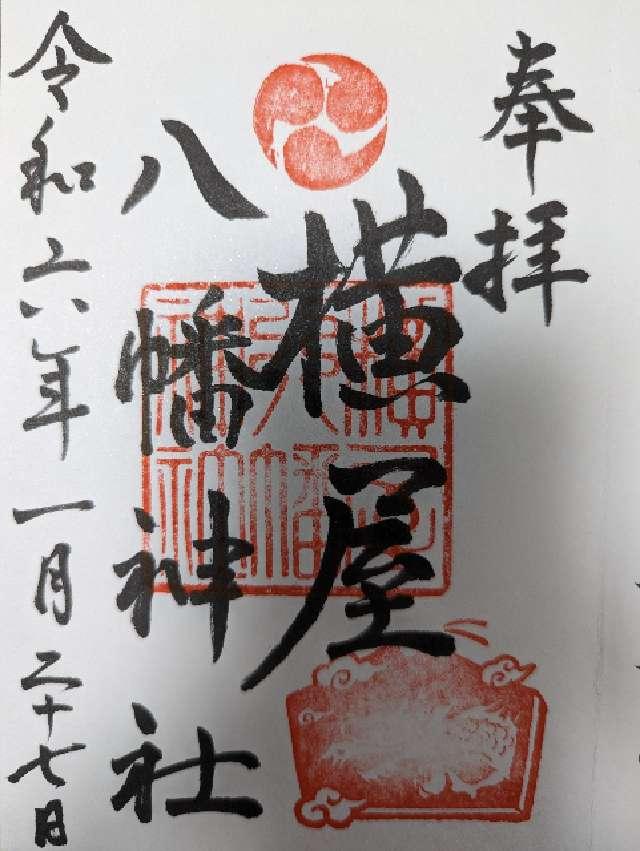 奉拝
横屋
八幡神社
令和六年一月二十七日